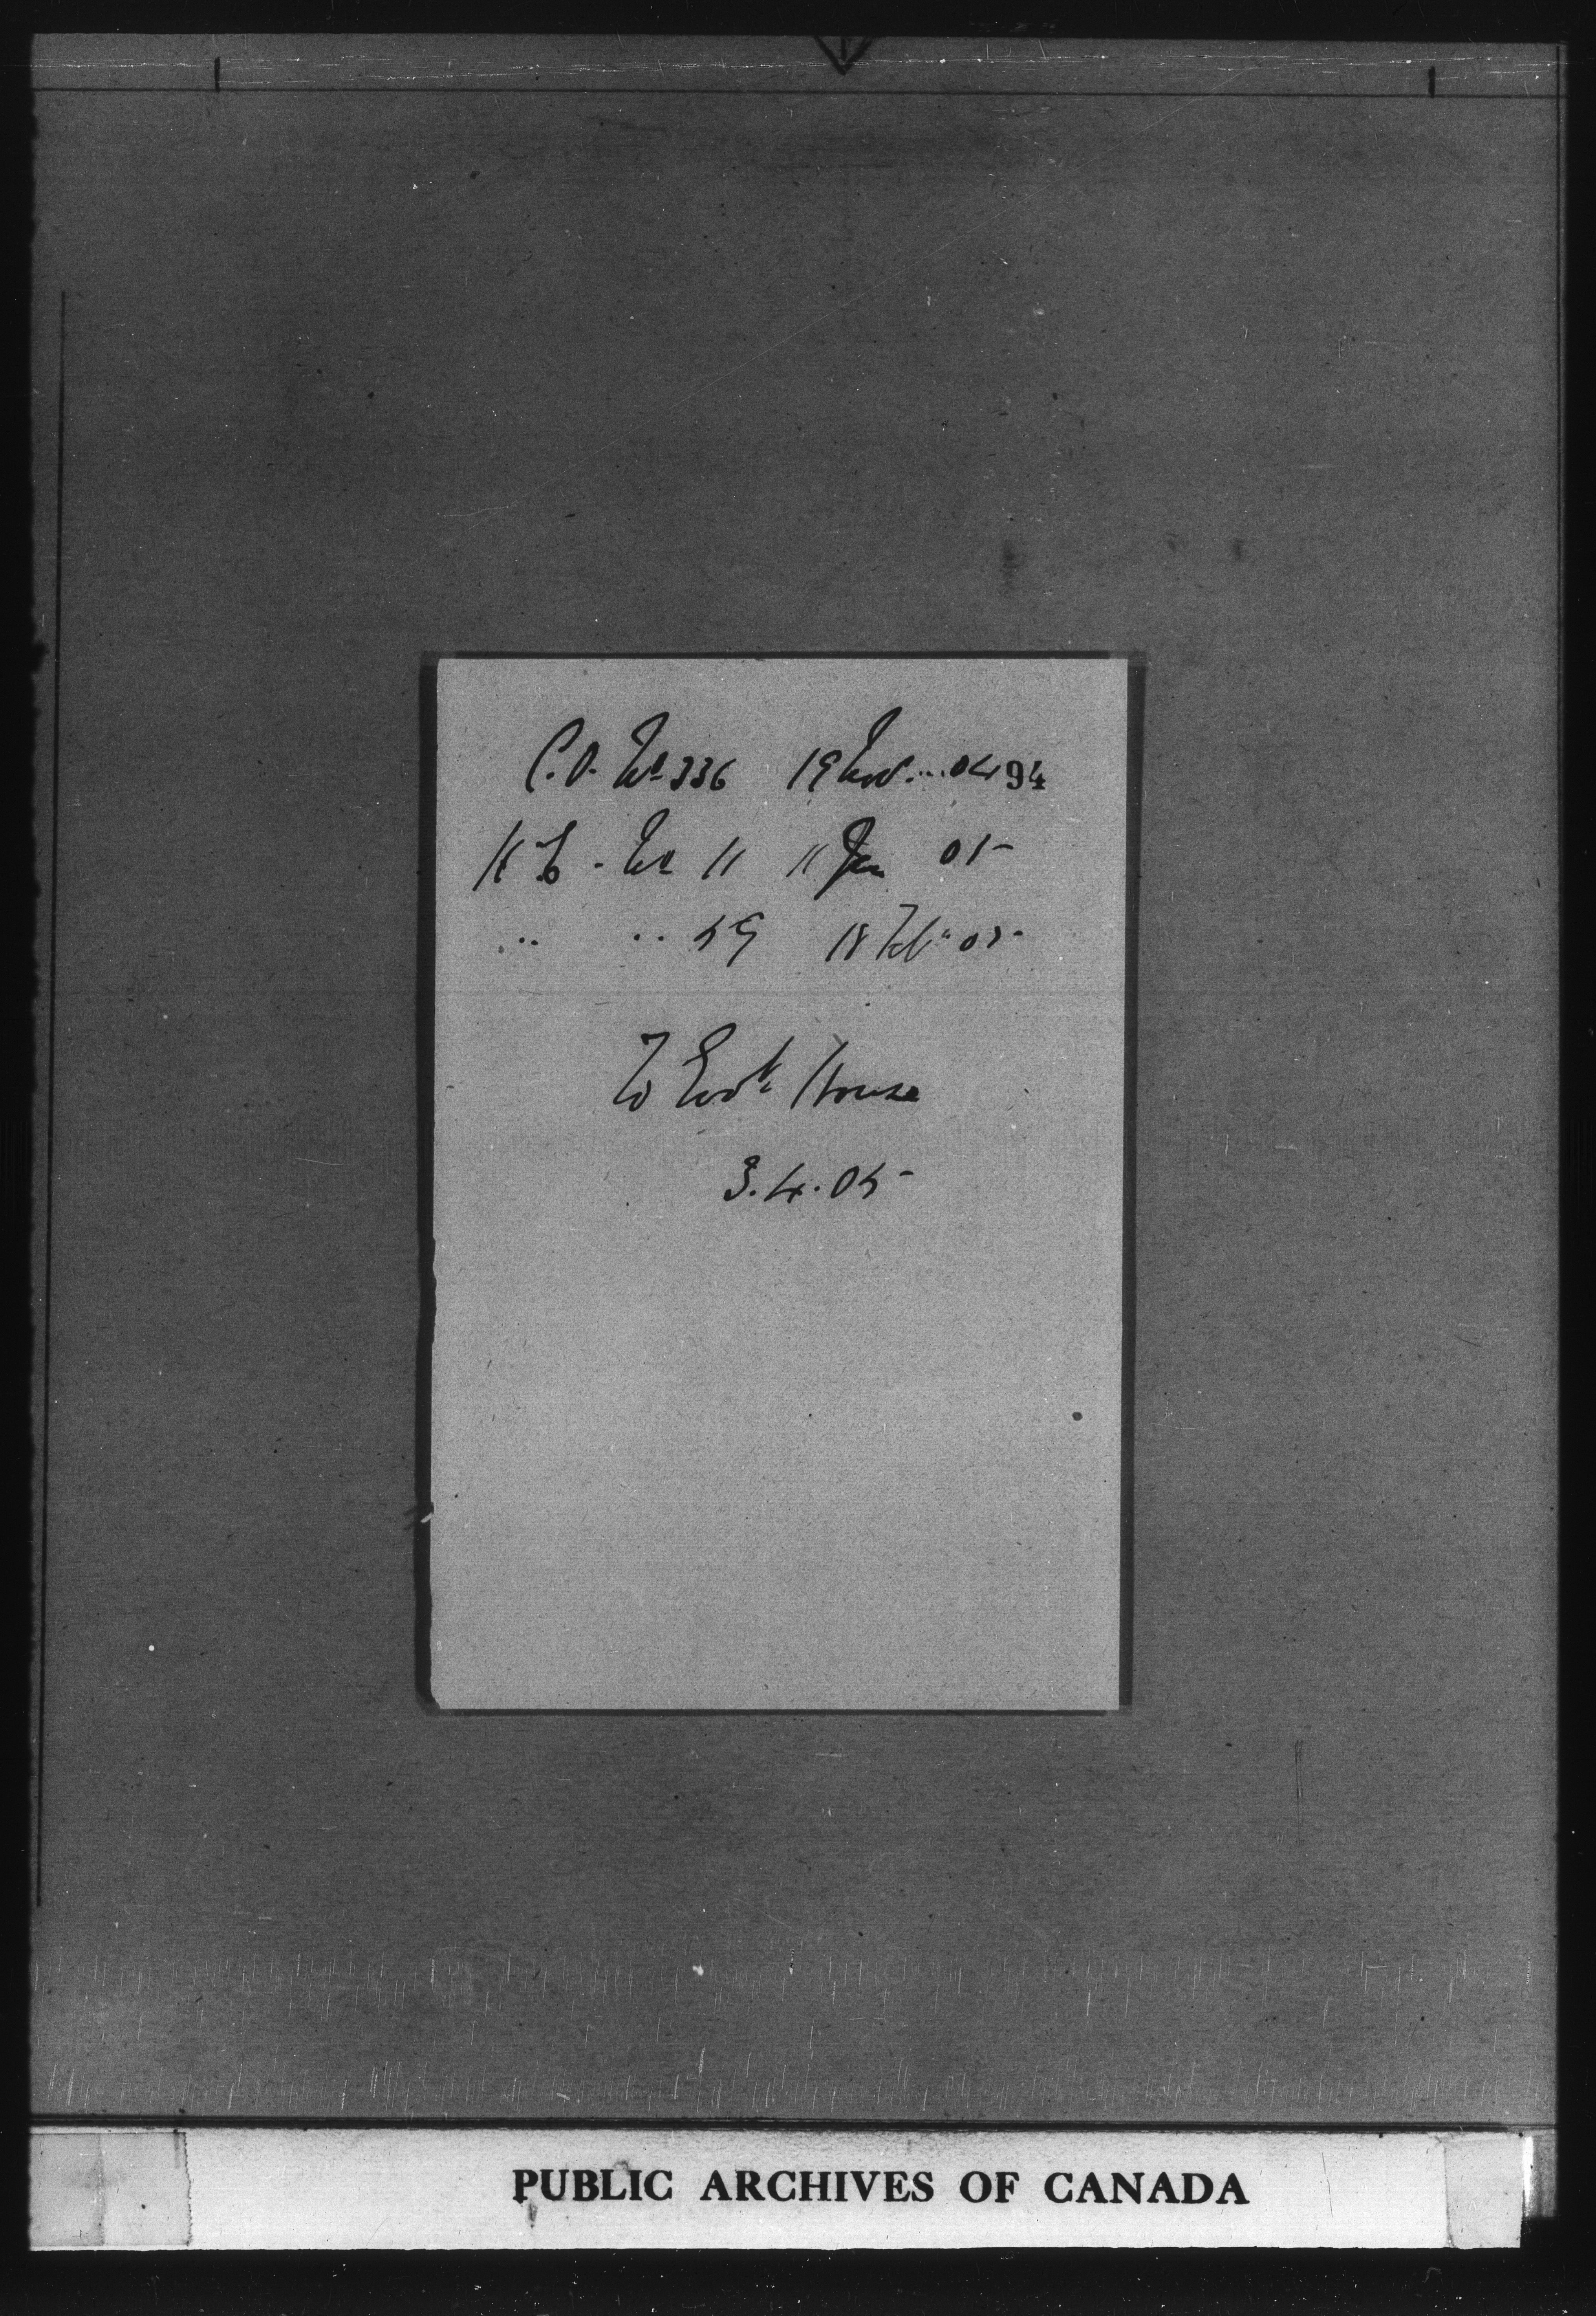 C.O. No 336 19 Nov. .. 04 94
No 11 11 Jan 05
" " 59 18 Feb 05
To Govt House
3.4.05
PUBLIC ARCHIVES OF CANADA